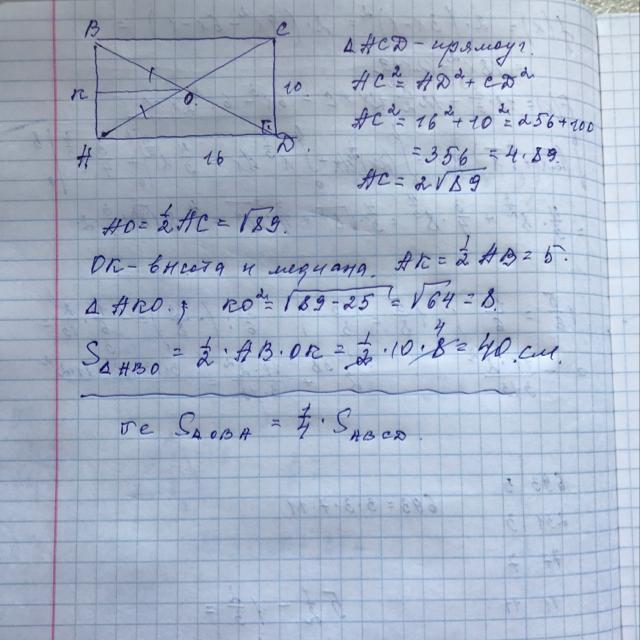 B C
K O 10
A 16 D
△ACD - прямоуг.
AC² = AD² + CD²
AC² = 16² + 10² = 256 + 100
= 356 = 4·89.
AC = 2√89
AO = ½ AC = √89.
OK - высота и медиана. AK = ½ AB = 5.
△AKO: KO² = √89-25 = √64 = 8.
S△ABO = ½ · AB · OK = ½ · 10 · 8 4 = 40 см.
те S△OBA = ¼ · SABCD.